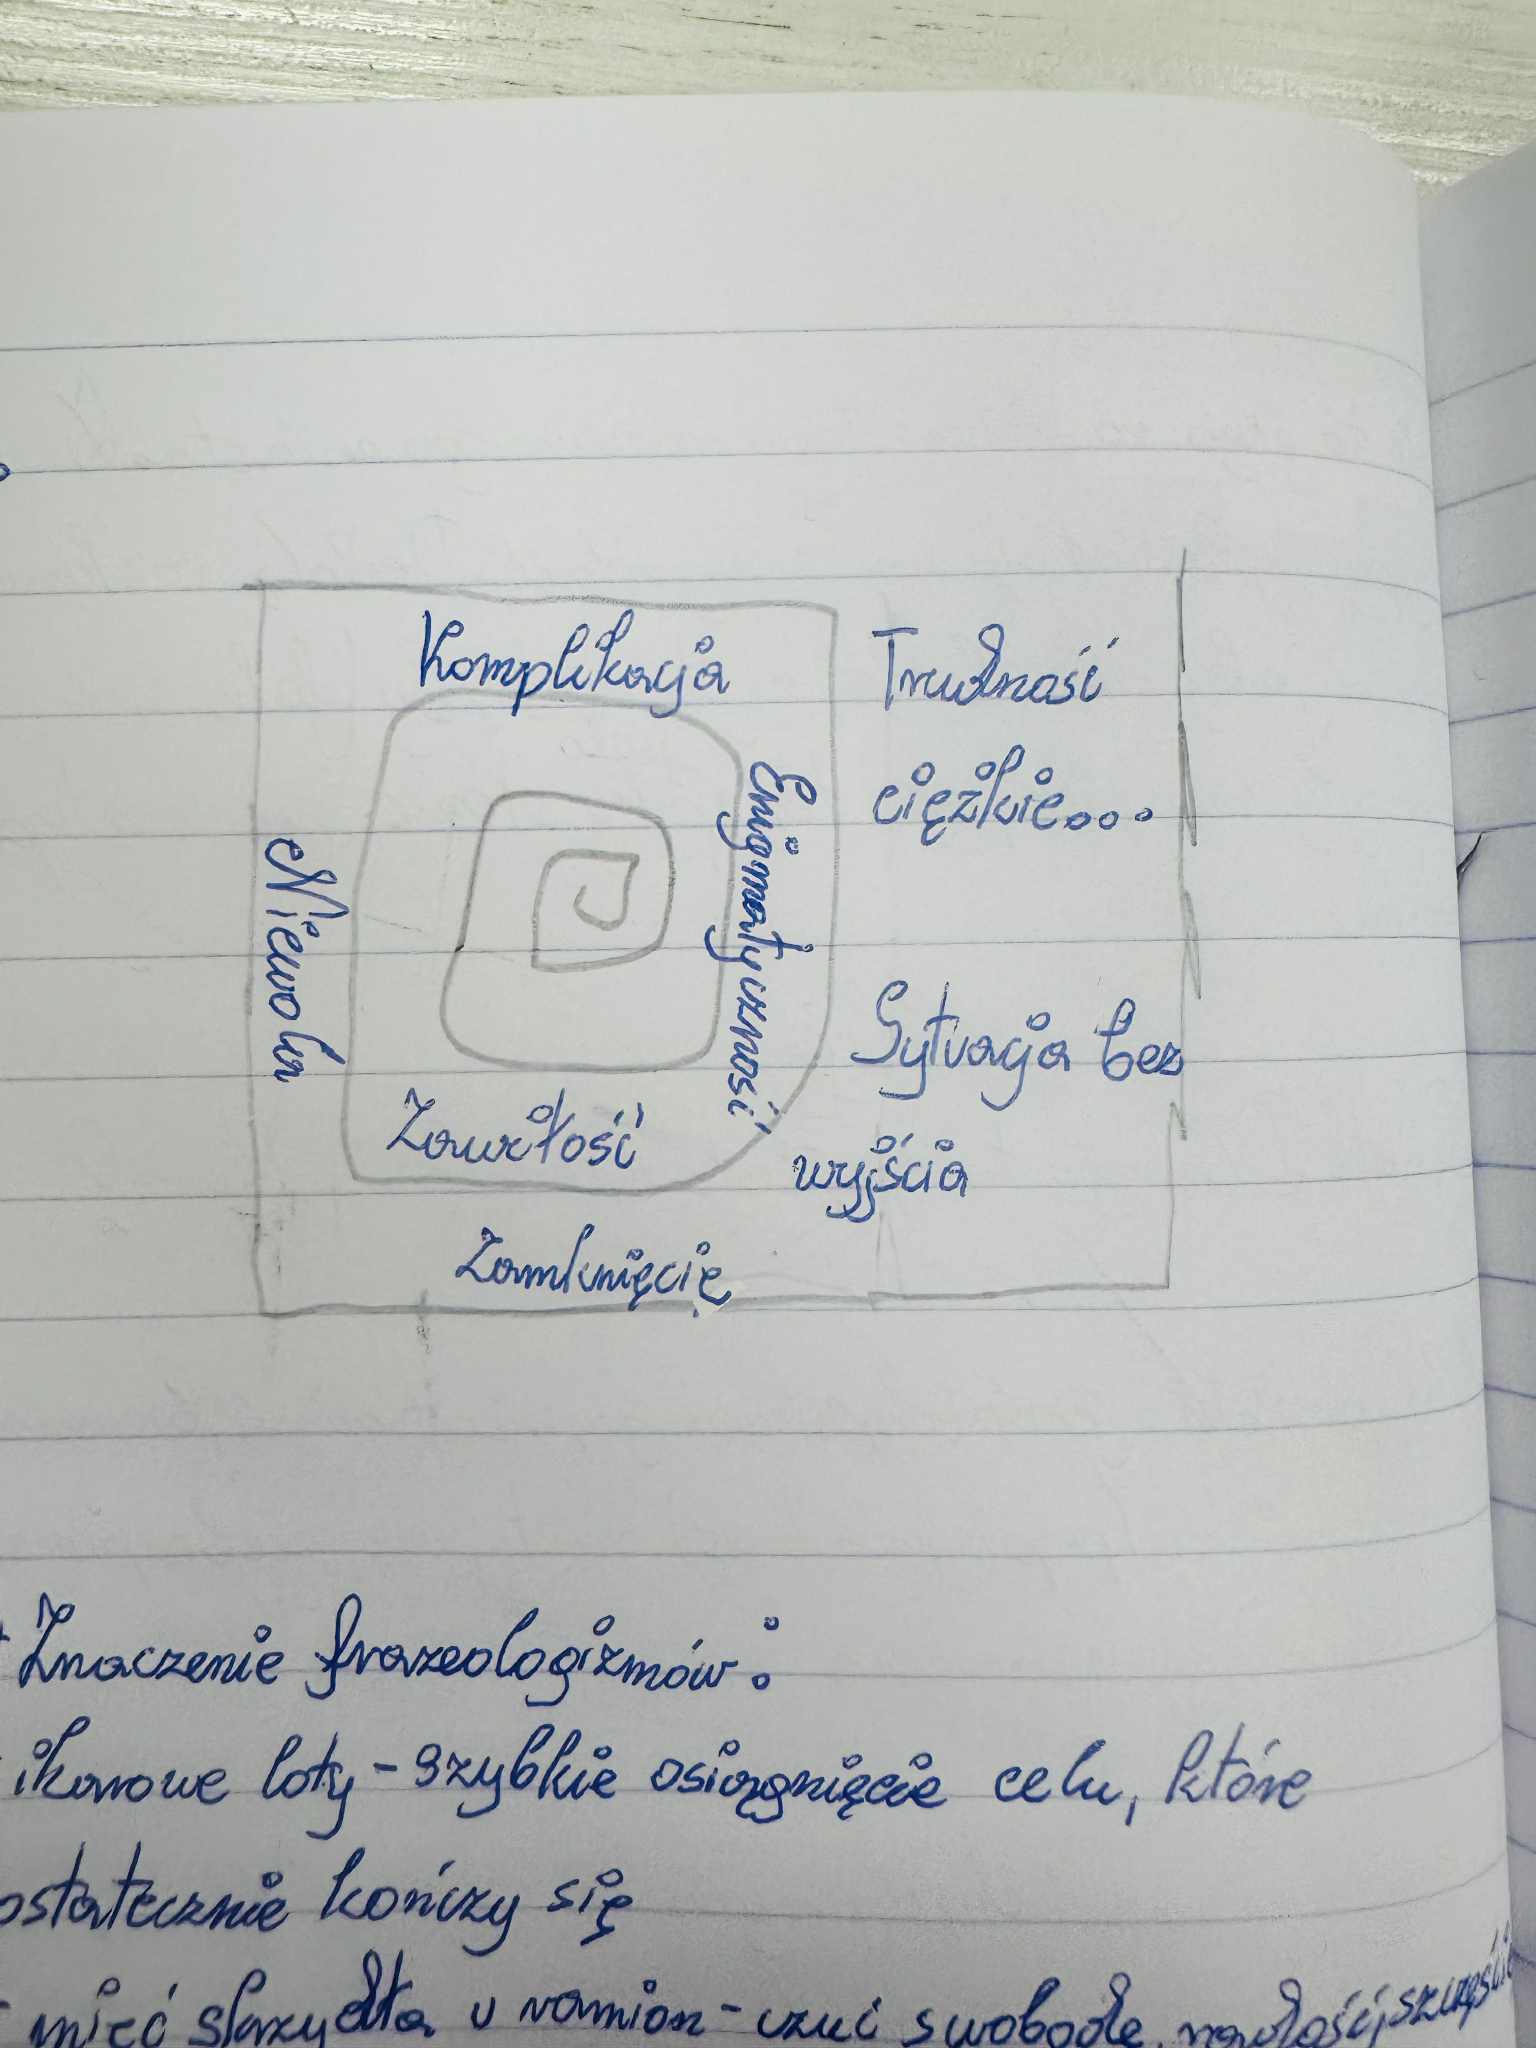 Komplikacja
Trudność
ciężkie...
Enigmatyczność
Niewola
Sytuacja bez
wyjścia
Zawiłość
Zamknięcie
Znaczenie frazeologizmów:
ikarowe loty - szybkie osiągnięcie celu, które
ostatecznie kończy się
mieć skrzydła u ramion - czuć swobodę, radość, szczęście